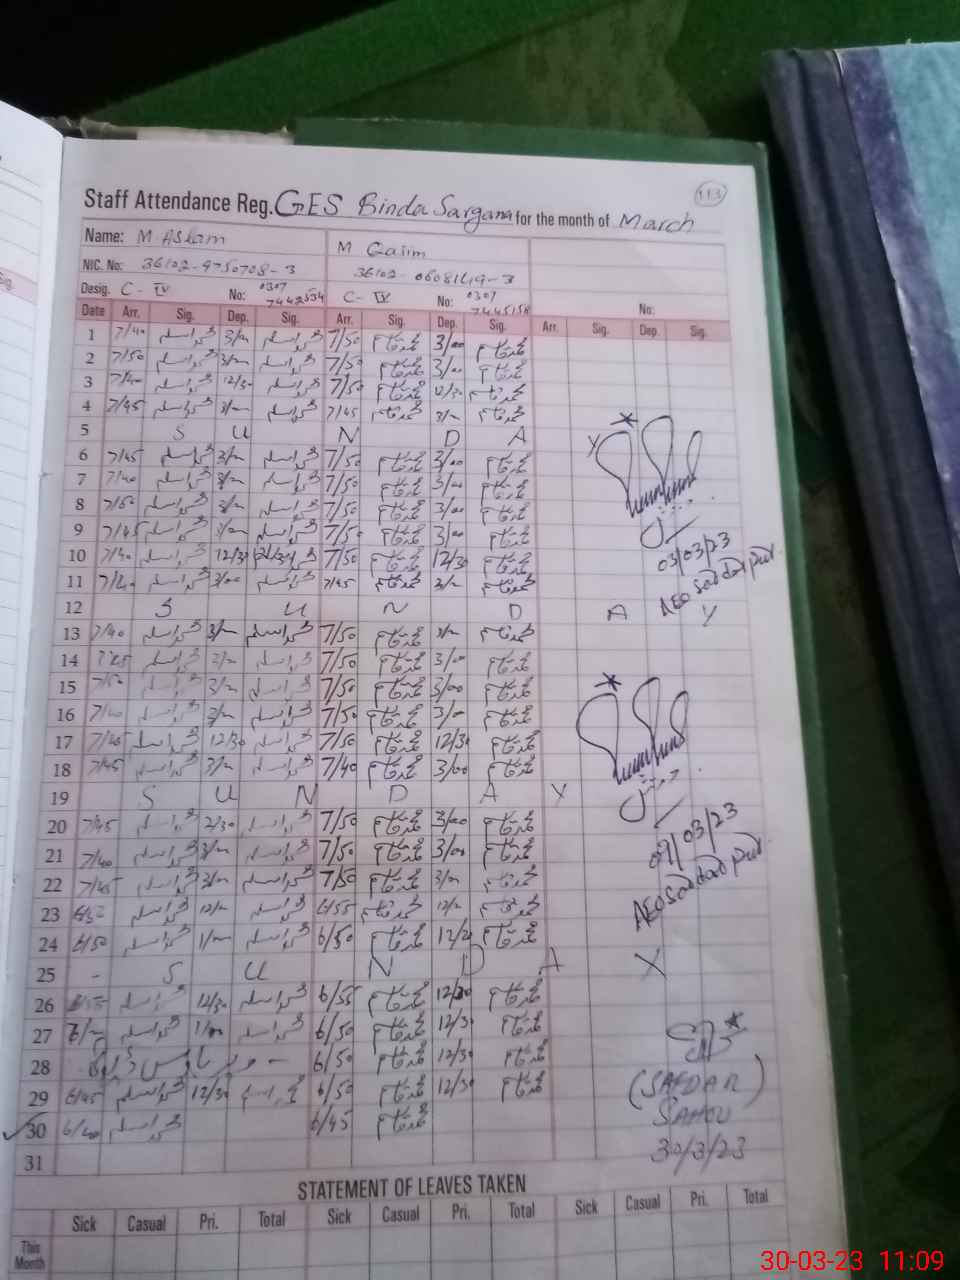 113
Staff Attendance Reg. GES Binda Sargana for the month of March
Name: M. Aslam M Qasim
NIC. No: 36102-9750708-3 36102-0608149-3
Desig. C-IV No: 0307 C-IV No: 0307 No:
7442534
Date Arr. Sig. Dep. Sig. Arr. Sig. Dep. Sig. Arr. Sig. Dep. Sig.
1 7/40 محمد اسلم 3/00 محمد اسلم 7/50 محمد قاسم 3/00 محمد قاسم
2 7/50 محمد اسلم 3/00 محمد اسلم 7/50 محمد قاسم 3/00 محمد قاسم
3 7/40 محمد اسلم 12/30 محمد اسلم 7/50 محمد قاسم 12/30 محمد قاسم
4 7/45 محمد اسلم 3/00 محمد اسلم 7/45 محمد قاسم 3/00 محمد قاسم
5 S U N D A Y
6 7/45 محمد اسلم 3/00 محمد اسلم 7/50 محمد قاسم 3/00 محمد قاسم
7 7/40 محمد اسلم 3/00 محمد اسلم 7/50 محمد قاسم 3/00 محمد قاسم
8 7/50 محمد اسلم 3/00 محمد اسلم 7/50 محمد قاسم 3/00 محمد قاسم
9 7/45 محمد اسلم 3/00 محمد اسلم 7/50 محمد قاسم 3/00 محمد قاسم
03/03/23
10 7/40 محمد اسلم 12/30 محمد اسلم 7/50 محمد قاسم 12/30 محمد قاسم
AEO Saddarpur
11 7/40 محمد اسلم 3/00 محمد اسلم 7/45 محمد قاسم 3/00 محمد قاسم
12 S U N D A Y
13 7/40 محمد اسلم 3/00 محمد اسلم 7/50 محمد قاسم 3/00 محمد قاسم
14 7/45 محمد اسلم 3/00 محمد اسلم 7/50 محمد قاسم 3/00 محمد قاسم
15 7/50 محمد اسلم 3/00 محمد اسلم 7/50 محمد قاسم 3/00 محمد قاسم
16 7/40 محمد اسلم 3/00 محمد اسلم 7/50 محمد قاسم 3/00 محمد قاسم
17 7/45 محمد اسلم 12/30 محمد اسلم 7/50 محمد قاسم 12/30 محمد قاسم
18 7/45 محمد اسلم 3/00 محمد اسلم 7/40 محمد قاسم 3/00 محمد قاسم
19 S U N D A Y
20 7/45 محمد اسلم 2/30 محمد اسلم 7/50 محمد قاسم 3/00 محمد قاسم
09/03/23
21 7/40 محمد اسلم 3/00 محمد اسلم 7/50 محمد قاسم 3/00 محمد قاسم
AEO Saddarpur
22 7/45 محمد اسلم 3/00 محمد اسلم 7/50 محمد قاسم 3/00 محمد قاسم
23 محمد اسلم 12/00 محمد اسلم 6/55 محمد قاسم 12/00 محمد قاسم
24 6/50 محمد اسلم 1/00 محمد اسلم 6/50 محمد قاسم محمد قاسم
25 - S U N D A Y
26 6/55 محمد اسلم 12/30 محمد اسلم 6/55 محمد قاسم 12/30 محمد قاسم
27 محمد اسلم 1/00 محمد اسلم 6/50 محمد قاسم 12/30 محمد قاسم
28 6/50 محمد قاسم 12/30 محمد قاسم
29 6/45 محمد اسلم 12/30 محمد اسلم 6/50 محمد قاسم 12/30 محمد قاسم
(SAFDAR)
30 6/40 محمد اسلم 6/45 محمد قاسم
31
30/3/23
STATEMENT OF LEAVES TAKEN
Sick Casual Pri. Total Sick Casual Pri. Total Sick Casual Pri. Total
This
Month
30-03-23 11:09